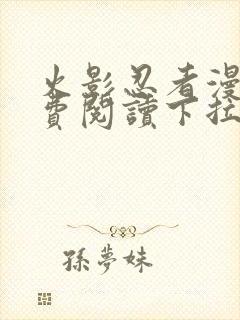 火影忍者漫
費閱讀下拉
孫夢妹